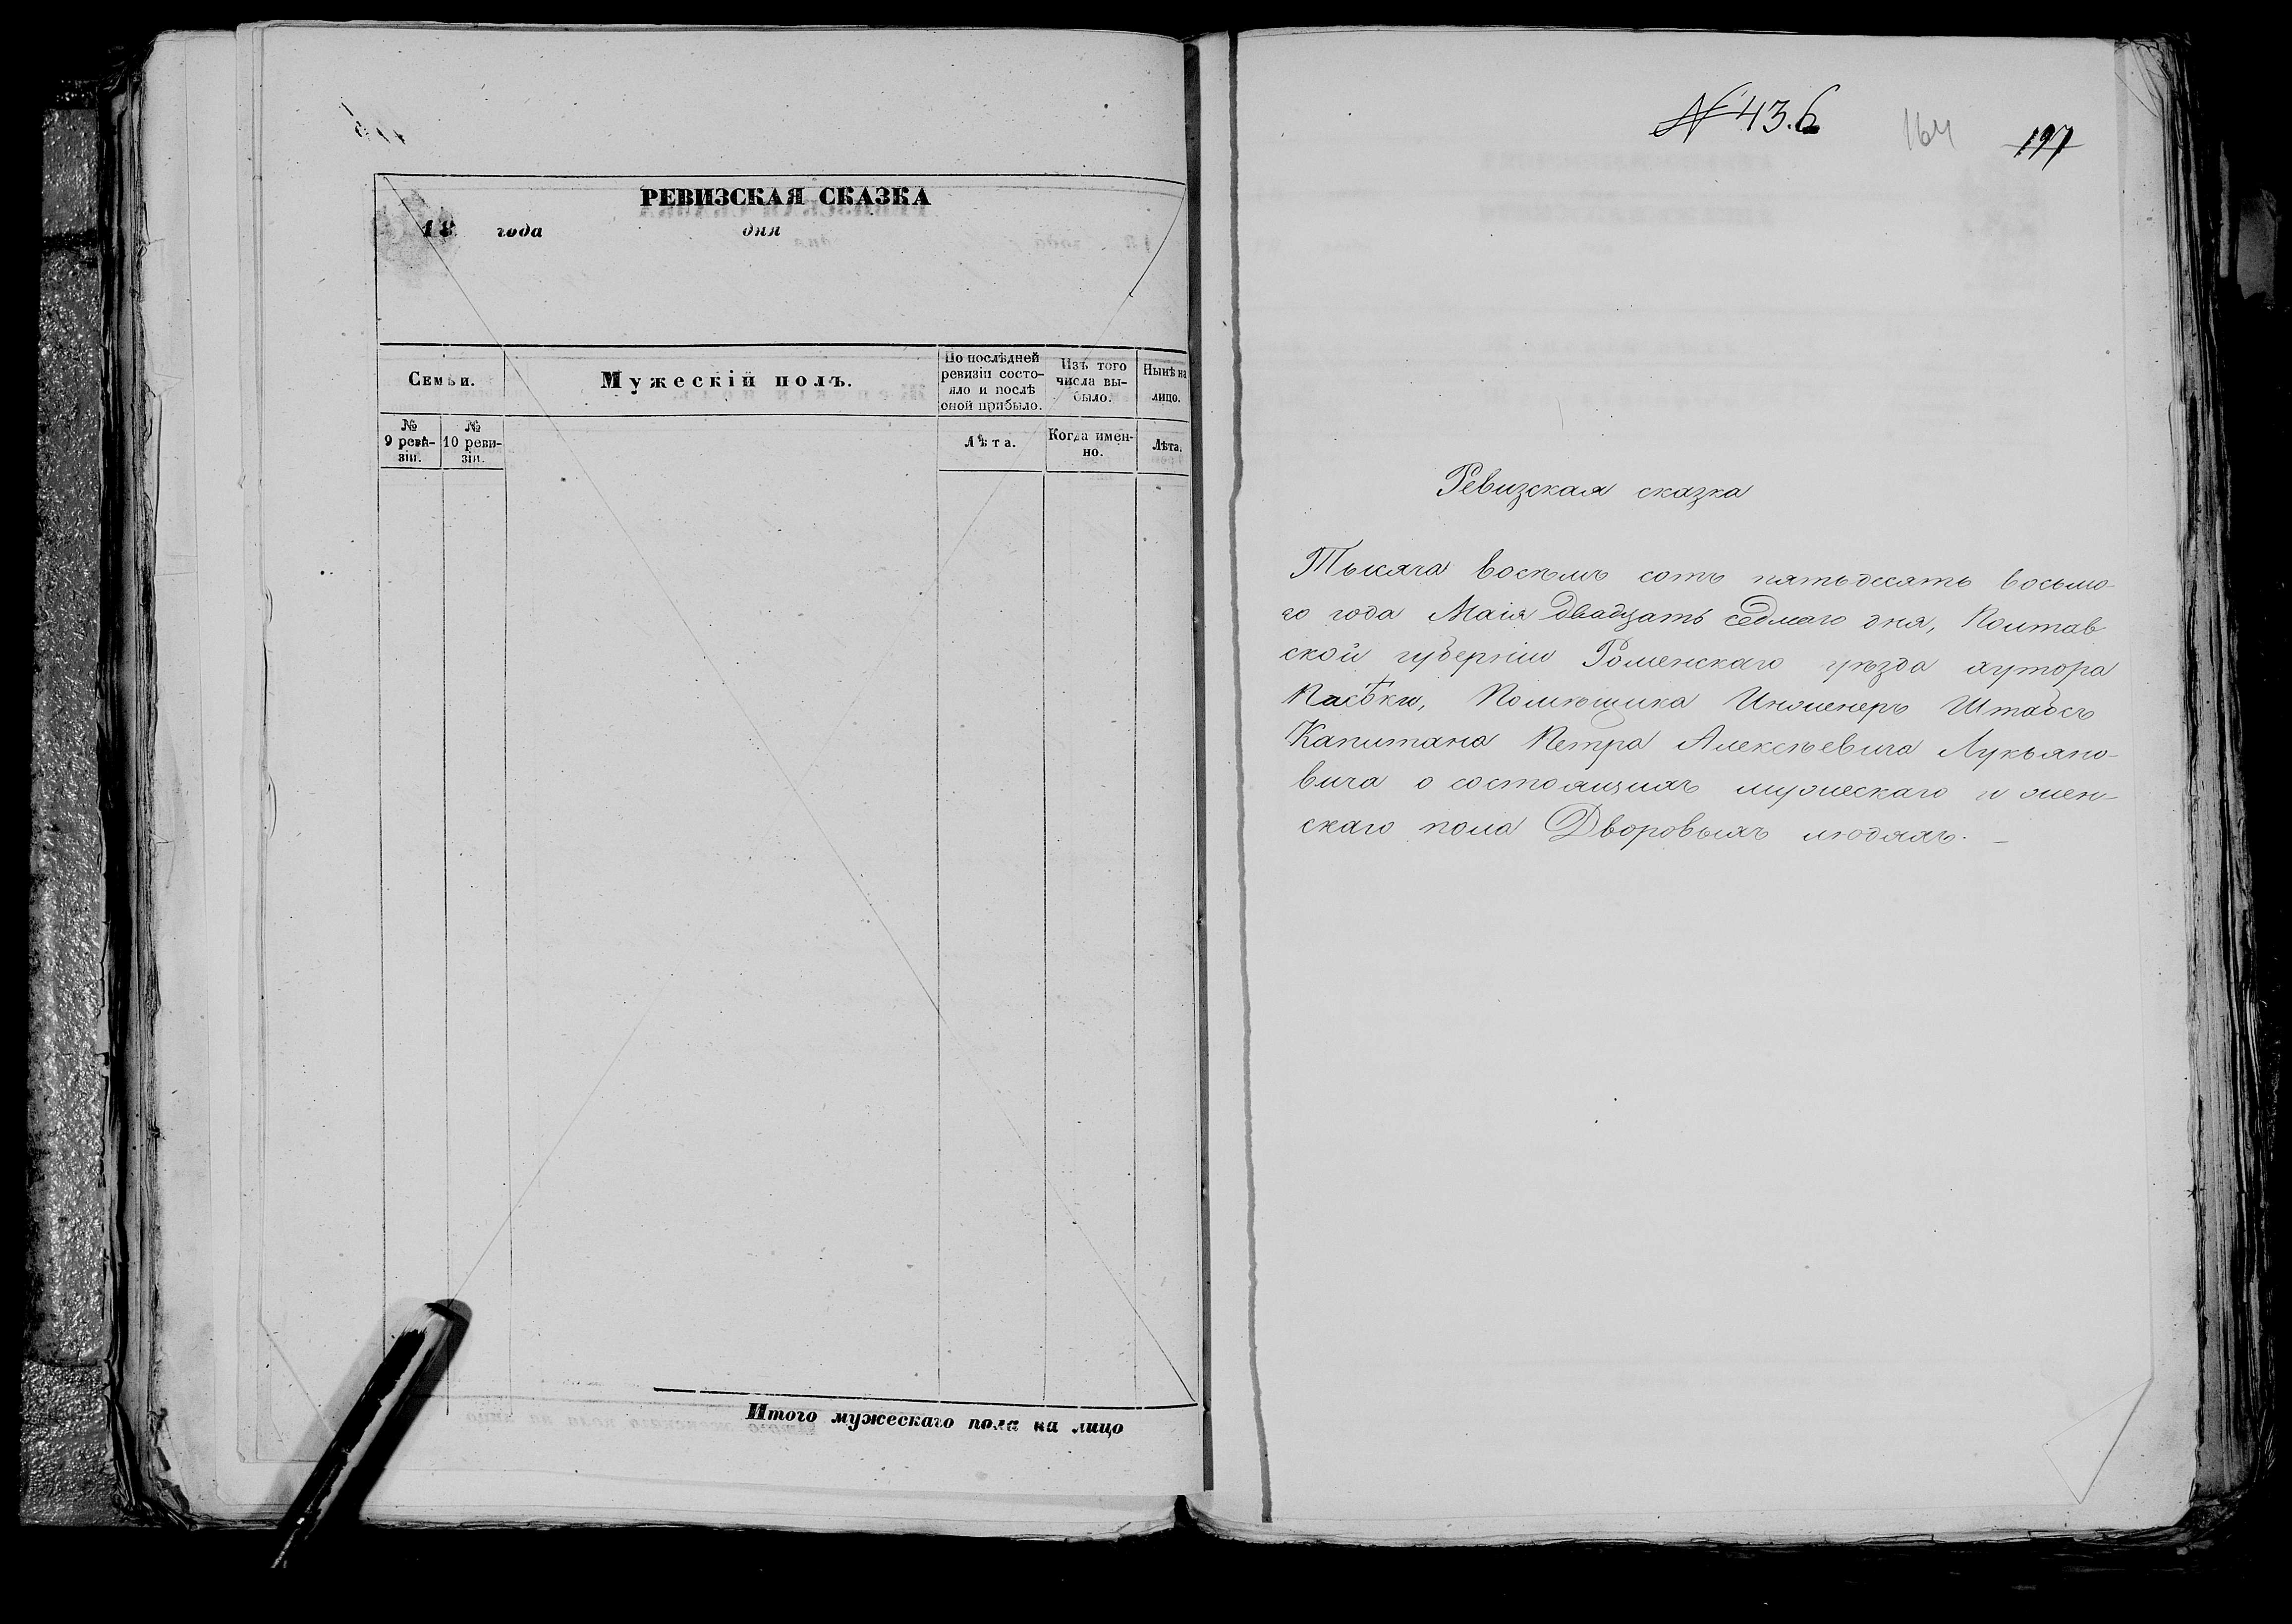 РЕВИЗСКАЯ СКАЗКА
18 года дня
Семьи.
Мужескій полъ.
По послѣдней ревизіи состо-
яло и послѣ
оной прибыло.
Изъ того
числа вы-
было.
Нынѣ на
лицо.
№
9 реви-
зіи.
№
10 реви-
зіи.
Лѣта.
Когда имен-
но.
Лѣта.
Итого мужескаго пола на лицо
№ 43.6
164
197
Ревизская сказка
Тысяча восѣмъ сотъ пятьдесятъ восьмо-
го года Маія двадцать седмаго дня, Полтав
ской губерніи Роменскаго уѣзда хутора
Пасѣки, Помѣщика Инженеръ Штабсъ
Капитана Петра Алексѣевича Лукьяно-
вича о состоящихъ мужескаго и жен-
скаго пола Дворовыхъ людяхъ. –